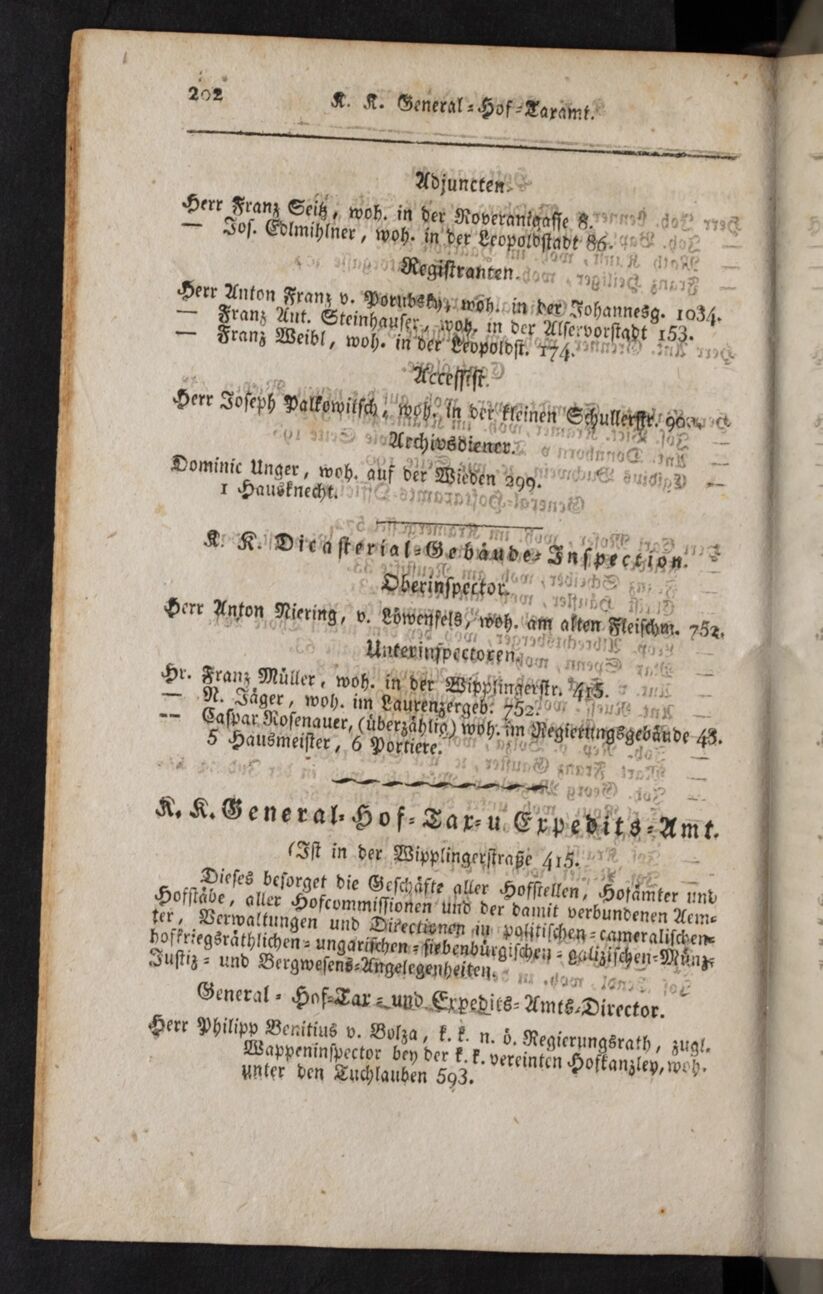 202
K. K. General-Hof-Taxamt.
Adjuncten.
Herr Franz Seitz, woh. in der Roveranigasse 8.
— Jos. Edlmihlner, woh. in der Leopoldstadt 86.
Registranten.
Herr Anton Franz v. Porubsky, woh. in der Johannesg. 1034.
— Franz Ant. Steinhauser, woh. in der Alservorstadt 153.
— Franz Weibl, woh. in der Leopoldst. 174.
Accessist.
Herr Joseph Palkowitsch, woh. in der kleinen Schullerstr.
Archivsdiener.
Dominic Unger, woh. auf der Wieden 299.
1 Hausknecht.
K. K. Dicasterial-Gebäude-Inspection.
Oberinspector.
Herr Anton Niering, v. Löwenfels, woh. am alten Fleischm. 752.
Unterinspectoren.
Hr. Franz Müller, woh. in der Wipplingerstr. 415.
— N. Jäger, woh. im Laurenzergeb. 752.
— Caspar Rosenauer, (überzählig) woh. im Regierungsgebäude 43.
5 Hausmeister, 6 Portiere.
K. K. General-Hof-Tax-u. Expedits-Amt.
(Ist in der Wipplingerstraße 415.
Dieses besorget die Geschäfte aller Hofstellen, Hofämter und
Hofstäbe, aller Hofcommissionen und der damit verbundenen Aem-
ter, Verwaltungen und Directionen in politischen-cameralischen-
hofkriegsräthlichen-ungarischen-siebenbürgischen-galizischen-Münz-
Justiz- und Bergwesens-Angelegenheiten.
General-Hof-Tax- und Expedits-Amts-Director.
Herr Philipp Benitius v. Bolza, k. k. n. ö. Regierungsrath, zugl.
Wappeninspector bey der k. k. vereinten Hofkanzley, woh.
unter den Tuchlauben 593.